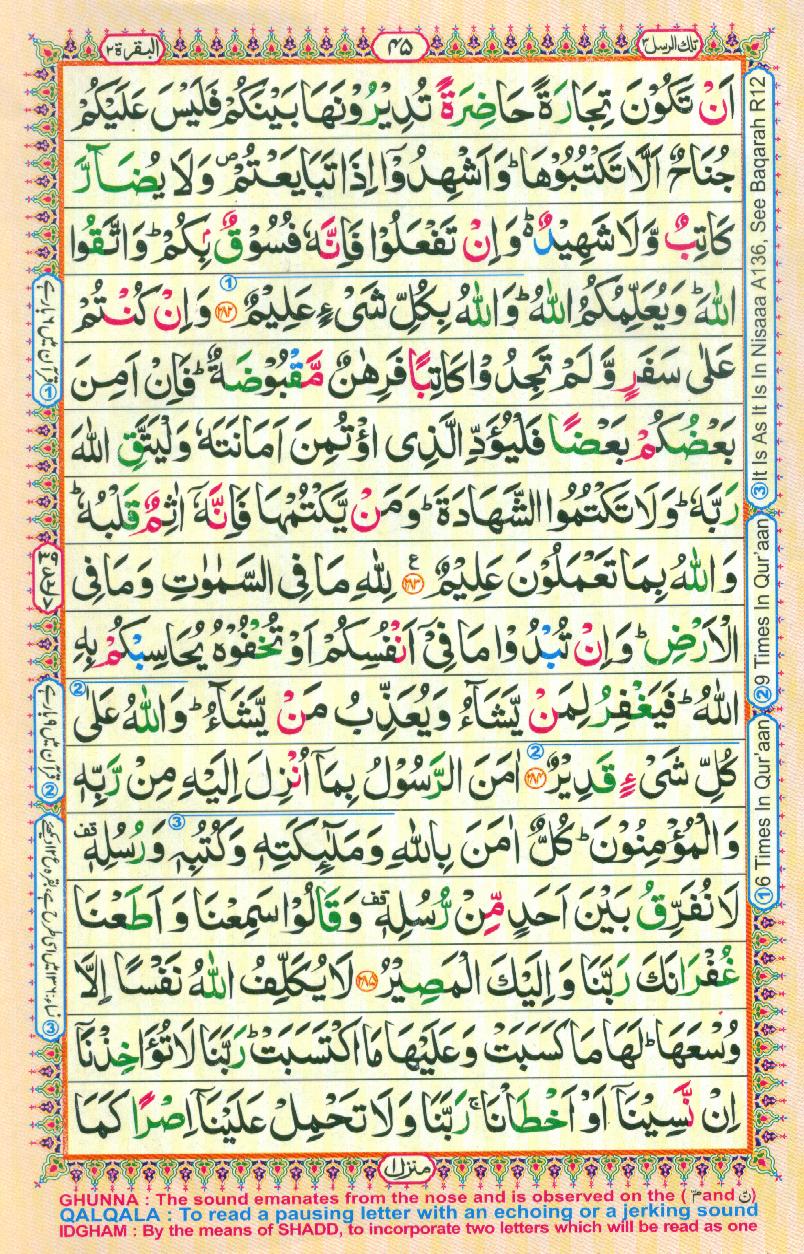 تلك الرسل ٣
٤٥
البقرة ٢
اَنْ تَكُوْنَ تِجَارَةً حَاضِرَةً تُدِيْرُوْنَهَا بَيْنَكُمْ فَلَيْسَ عَلَيْكُمْ
جُنَاحٌ اَلَّا تَكْتُبُوْهَا ؕ وَاَشْهِدُوْۤا اِذَا تَبَايَعْتُمْ ۪ وَلَا يُضَآرَّ
كَاتِبٌ وَّلَا شَهِيْدٌ ؕ۬ وَاِنْ تَفْعَلُوْا فَاِنَّهٗ فُسُوْقٌۢ بِكُمْ ؕ وَاتَّقُوا
اللّٰهَ ؕ وَيُعَلِّمُكُمُ اللّٰهُ ؕ وَاللّٰهُ بِكُلِّ شَیْءٍ عَلِيْمٌ ﴿۲۸۲﴾ وَاِنْ كُنْتُمْ
عَلٰى سَفَرٍ وَّلَمْ تَجِدُوْا كَاتِبًا فَرِهٰنٌ مَّقْبُوْضَةٌ ؕ فَاِنْ اَمِنَ
بَعْضُكُمْ بَعْضًا فَلْيُؤَدِّ الَّذِی اؤْتُمِنَ اَمَانَتَهٗ وَلْيَتَّقِ اللّٰهَ
رَبَّهٗ ؕ وَلَا تَكْتُمُوا الشَّهَادَةَ ؕ وَمَنْ يَّكْتُمْهَا فَاِنَّهٗۤ اٰثِمٌ قَلْبُهٗ ؕ
وَاللّٰهُ بِمَا تَعْمَلُوْنَ عَلِيْمٌ ﴿۲۸۳﴾ ع لِلّٰهِ مَا فِی السَّمٰوٰتِ وَمَا فِی
الْاَرْضِ ؕ وَاِنْ تُبْدُوْا مَا فِیْۤ اَنْفُسِكُمْ اَوْ تُخْفُوْهُ يُحَاسِبْكُمْ بِهِ
اللّٰهُ ؕ فَيَغْفِرُ لِمَنْ يَّشَآءُ وَيُعَذِّبُ مَنْ يَّشَآءُ ؕ وَاللّٰهُ عَلٰى
كُلِّ شَیْءٍ قَدِيْرٌ ﴿۲۸۴﴾ اٰمَنَ الرَّسُوْلُ بِمَاۤ اُنْزِلَ اِلَيْهِ مِنْ رَّبِّهٖ
وَالْمُؤْمِنُوْنَ ؕ كُلٌّ اٰمَنَ بِاللّٰهِ وَمَلٰٓئِكَتِهٖ وَكُتُبِهٖ وَرُسُلِهٖ قف
لَا نُفَرِّقُ بَيْنَ اَحَدٍ مِّنْ رُّسُلِهٖ قف وَقَالُوْا سَمِعْنَا وَاَطَعْنَا
غُفْرَانَكَ رَبَّنَا وَاِلَيْكَ الْمَصِيْرُ ﴿۲۸۵﴾ لَا يُكَلِّفُ اللّٰهُ نَفْسًا اِلَّا
وُسْعَهَا ؕ لَهَا مَا كَسَبَتْ وَعَلَيْهَا مَا اكْتَسَبَتْ ؕ رَبَّنَا لَا تُؤَاخِذْنَاۤ
اِنْ نَّسِيْنَاۤ اَوْ اَخْطَاْنَا ۚ رَبَّنَا وَلَا تَحْمِلْ عَلَيْنَاۤ اِصْرًا كَمَا
منزل ١
① 6 Times In Qur'aan
② 9 Times In Qur'aan
③ It Is As It Is In Nisaaa A136, See Baqarah R12
① قرآن میں ٦ بار ہے
② قرآن میں ٩ بار ہے
GHUNNA : The sound emanates from the nose and is observed on the ( مّ and نّ )
QALQALA : To read a pausing letter with an echoing or a jerking sound
IDGHAM : By the means of SHADD, to incorporate two letters which will be read as one